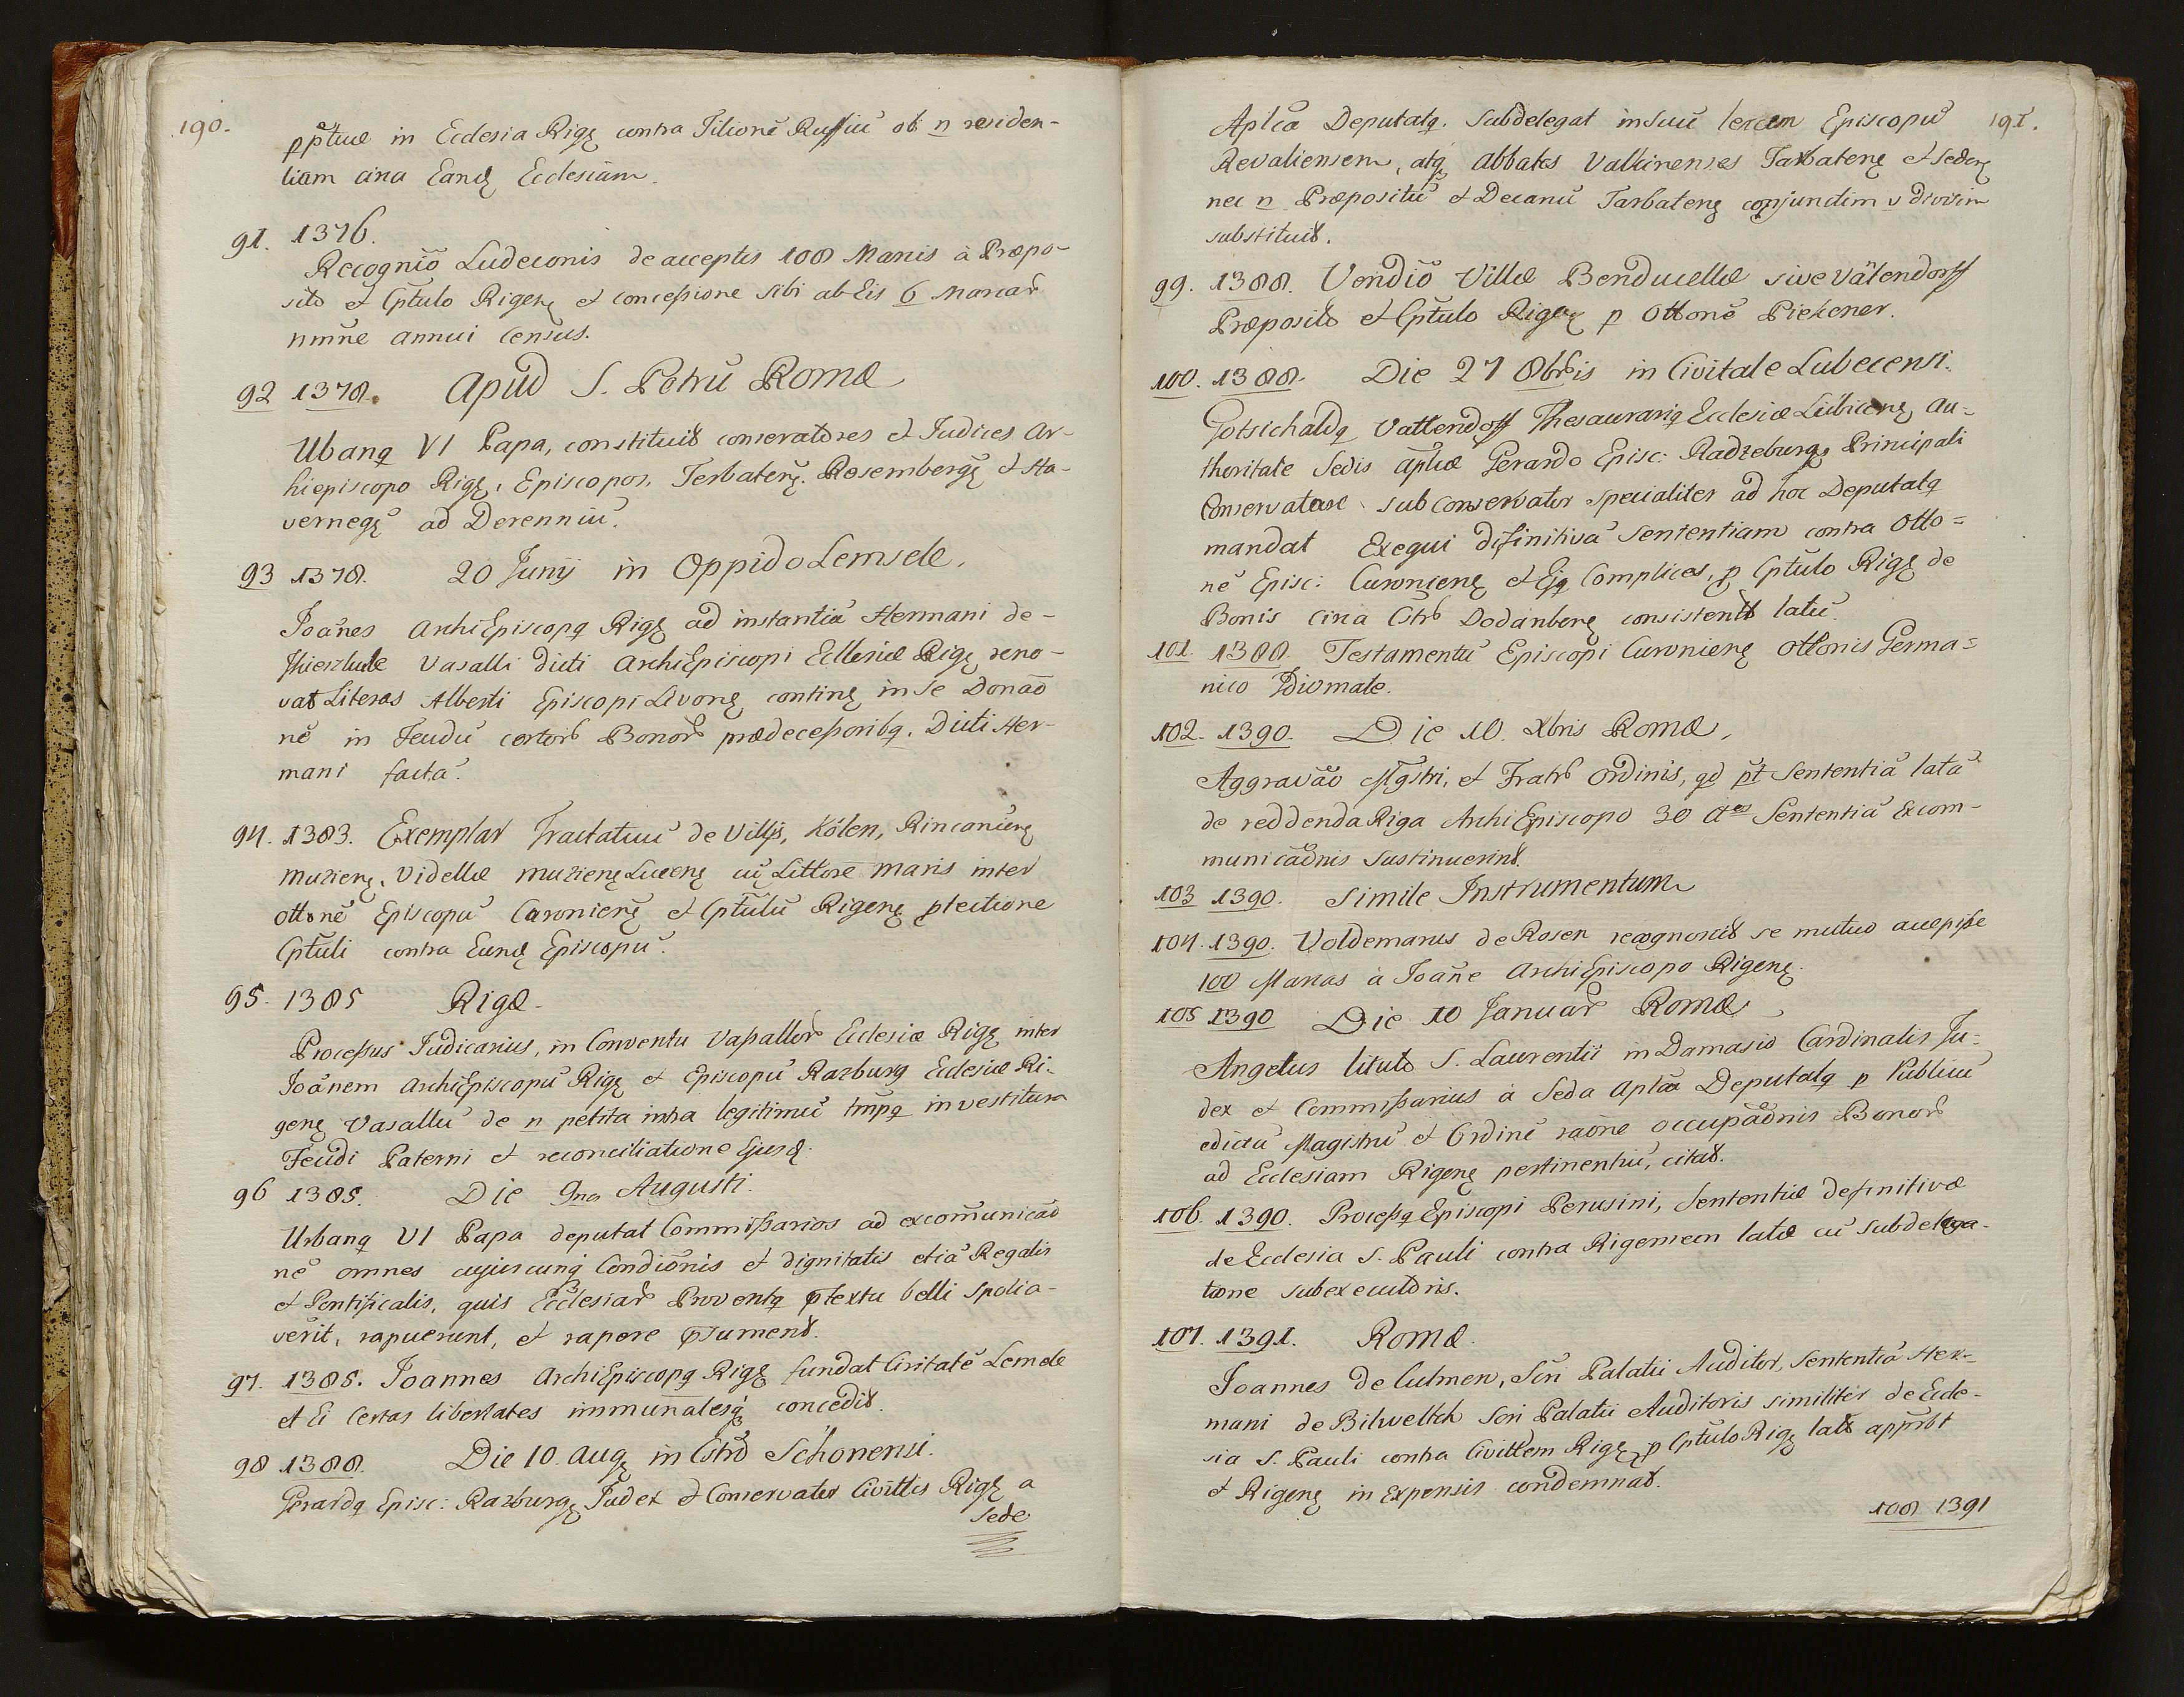 190.
pptuæ in Ecclesia Rigę contra Tilionē Russiū ob n residen-
tiam circa Eandę Ecclesiam.
91. 1376.
Recogniō Ludeconis de acceptis 100 Marcis à Præpo-
sito et Cptulo Rigenę et concessione sibi ab Eis 6 Marcar
nmne annui Census.
92 1378. Apud S. Petrū Romæ
Ubanq VI Papa, constituit conservatores et Judices Ar-
hiepiscopo Rigę, Episcopor. Terbatenę. Rosembergę et Ha-
vernegę ad Derenniū.
93 1378. 20 Junij in Oppido Lemsele.
Joānes ArchiEpiscopq Rigę ad instantiā Hermani de-
vasalli dicti ArchiEpiscopi Ecclesiæ Rigę reno-
vat Literas Alberti Episcopi Livonę continę in se Donaō
nē in Feudū certor Bonor prædecessoribq. Dicti Her-
mani factā.
94. 1383. Exemplar Tractatuū de Villjs, Kölen, Rinconienę
muzienę, Videllæ muzienę Lucenę cū Littore maris inter
ottonē Episcopū Curonienę et Cptulū Rigenę ptectione
Cptuli contra Eundę Episcopū.
95. 1385 Rigæ.
Processus Judicarius, in Conventu Vasallor Ecclesiæ Rigę inter
Joānem ArchiEpiscopū Rigę et Episcopū Razburg Ecclesiæ Ri-
genę Vasallū de n petita intra legitimū tmpq investitura
Feudi Paterni et reconciliatione Ejusdę.
96 1385. Die 9na Augusti.
Urbanq VI Papa deputat Commissarios ad excomunicaō
nē omnes cujuscunq Condiōnis et dignitatis etiā Regalis
et Pontificalis, quis Ecclesiar Proventq ptextu belli spolia-
verit, rapuerunt, et rapere psument.
97. 1385. Joannes ArchiEpiscopq Rigę fundat Civitatē Lemsle
et Ei Certas libertates immunatesq concedit.
98 1388. Die 10. Augę in Cstro Schonensi.
Gerardq Episc: Razburgę Judex et Conservator Civittis Rigę a
Sede

191.
Aplcā Deputatq. Subdelegat in suū Episcopū
Revaliensem, atq Abbates Valkinenses Tarbatenę et
nec n Præpositū et Decanū Tarbatenę conjunctim v divisim
substituit.
99. 1388. Vendiō Villæ Benducellæ sive Vätendorff
Præposito et Cptulo Rigenę p Ottonē Piekener.
100. 1388. Die 27 8bris in Civitate Lubecensi.
Gotsichaldq Vattendoff Thesaurariq Ecclesiæ Lubicenę, Au-
thoritate Sedis Aplcæ Gerardo Episc: Radzeburgę Principali
Conservatore subconservator specialiter ad hoc Deputatq
mandat Exequi difinitivā Sententiam contra Otto=
nē Episc: Curonienę et Ejq Complices, p Cptulo Rigę de
Bonis circa Cstr Dodanberę consistentb latū.
101. 1388. Testamentū Episcopi Curonienę ottonis Germa=
nico Idiomate.
102. 1390. Die 10. Xbris Romæ,
Aggravāo Mgstri, et Fratr Ordinis, qd pt Sententiā latā
de reddenda Riga ArchiEpiscopo 30 Sententiā Excom-
municāōnis sustinuerint.
103 1390. Simile Instrumentum
104. 1390. Voldemarus de Rosen recognoscit se mutuo accepisse
100 Marcas à Joāne ArchiEpiscopo Rigenę.
105 1390 Die 10 Januar Romæ,
Angelus titulo S. Laurentii in Damasio Cardinalis Ju-
dex et Commissarius à Seda Aplca Deputatq p Publicū
edictū Magistrū et Ordinē raōne occupāōnis Bonor
ad Ecclesiam Rigenę pertinentiū, citat.
106. 1390. Processq Episcopi Perusini, Sententiæ definitivæ
de Ecclesia S. Pauli contra Rigensem latæ cū subdelega-
tione subexecutoris.
107. 1391. Romæ.
Joannes de Culmen, Sri Palatii Auditor, Sententiā Her-
mani de Bilweltch Scri Palatii Auditoris similiter de Eccle-
sia S. Pauli contra Civittem Rigę, p Cptulo Rigę latā apprbt
et Rigenę in Expensis condemnat.
108. 1391